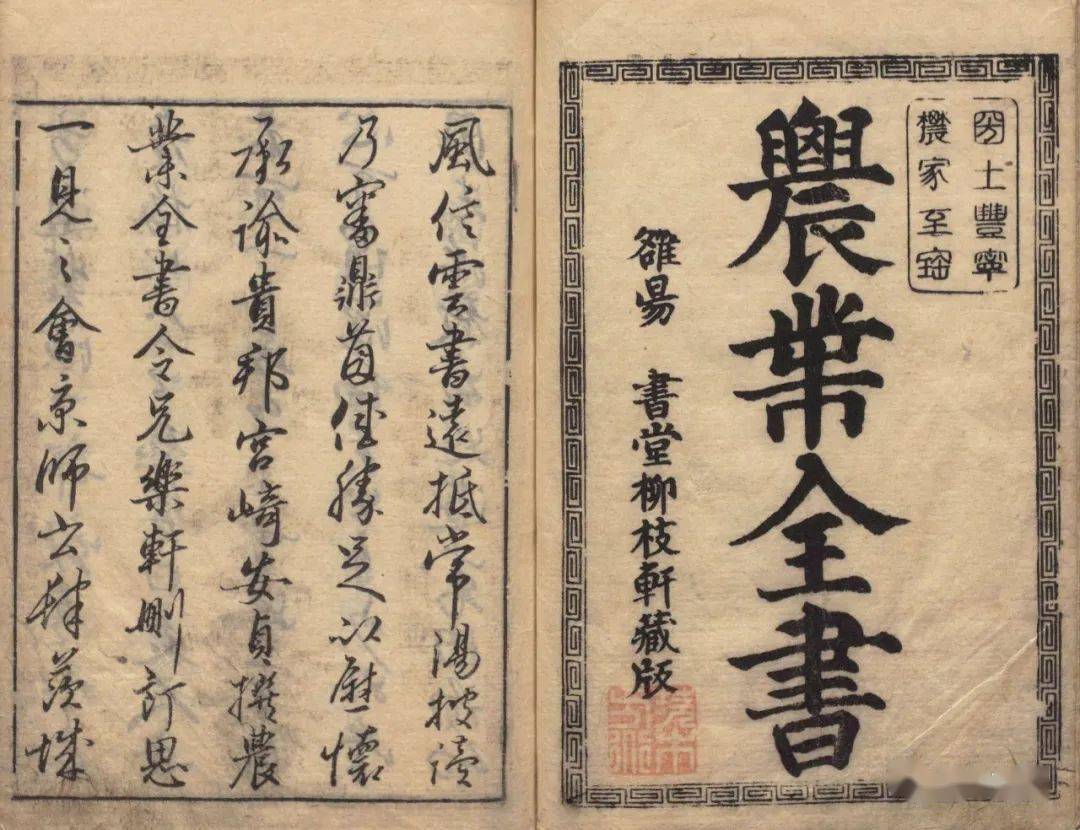 土豐寧
農家至珤
農業全書
雒昜　書堂柳枝軒藏版
風信雲書遠抵常陽披讀
乃審鼎茵佳勝足以慰懷
承諭貴邦宮崎安貞撰農
業全書令兄樂軒刪訂思
一見之會京師書肆茨城